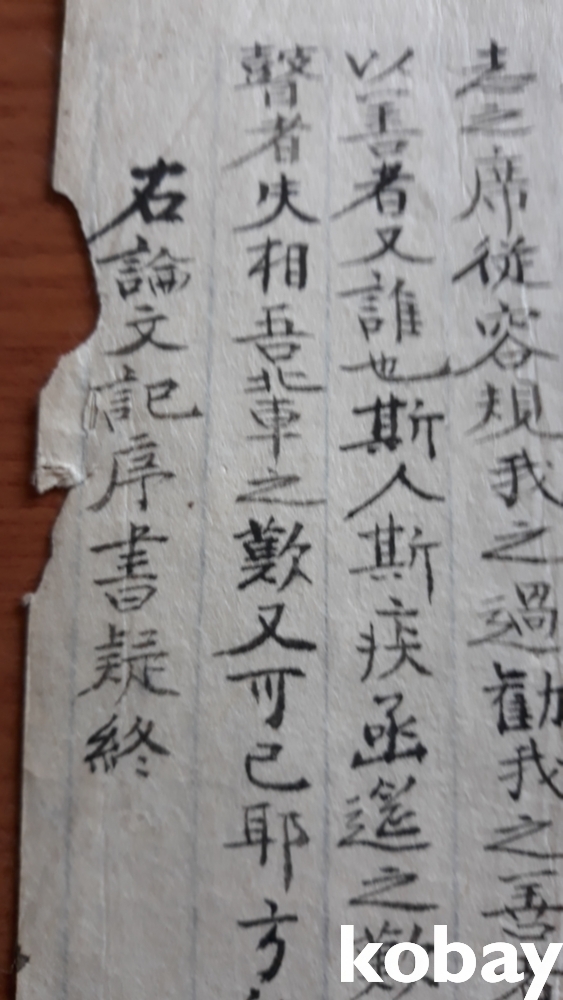 之席從容規我之過勸我之善
以善者又誰也斯人斯疾函筵之歎
瞽者失相吾北車之歎又可已耶方
右論文記序書疑終
kobay